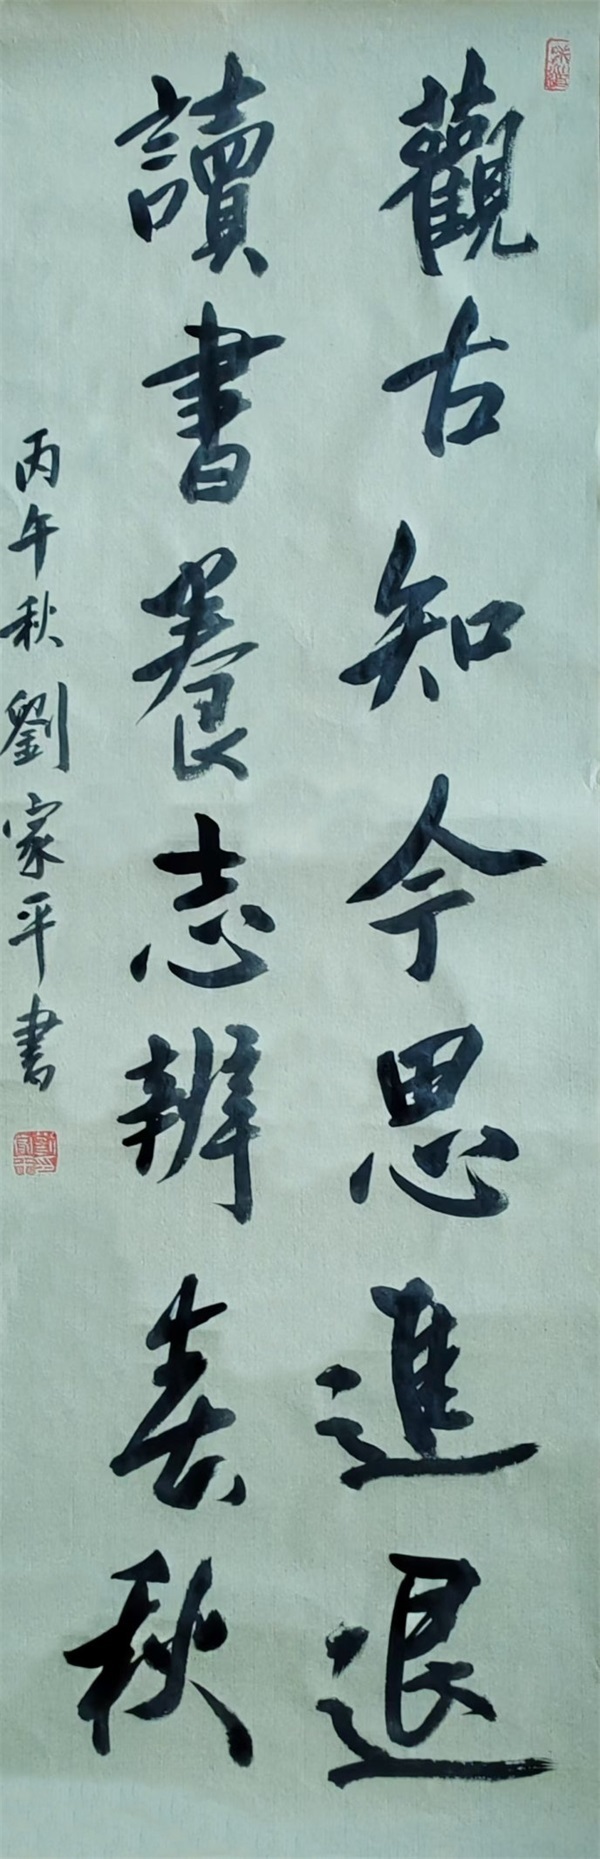 觀古知今思進退
讀書養志辨春秋
丙午秋劉家平書